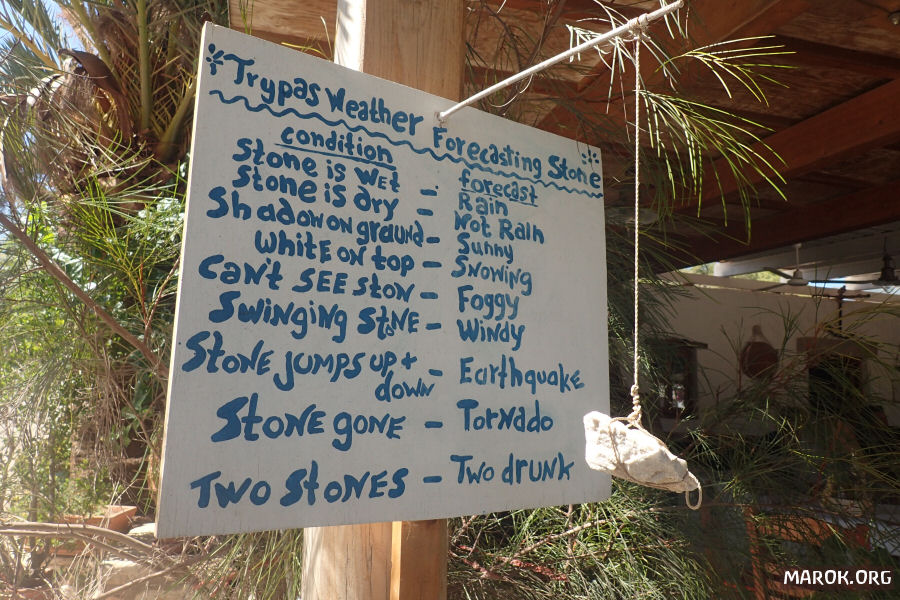 Trypas Weather Forecasting Stone
condition forecast
Stone is wet - Rain
Stone is dry - Not Rain
Shadow on ground - Sunny
White on top - Snowing
Can't SEE ston - Foggy
Swinging StoNE - Windy
Stone jumps up +
down - Earthquake
Stone gone - Tornado
Two Stones - Two drunk
MAROK.ORG